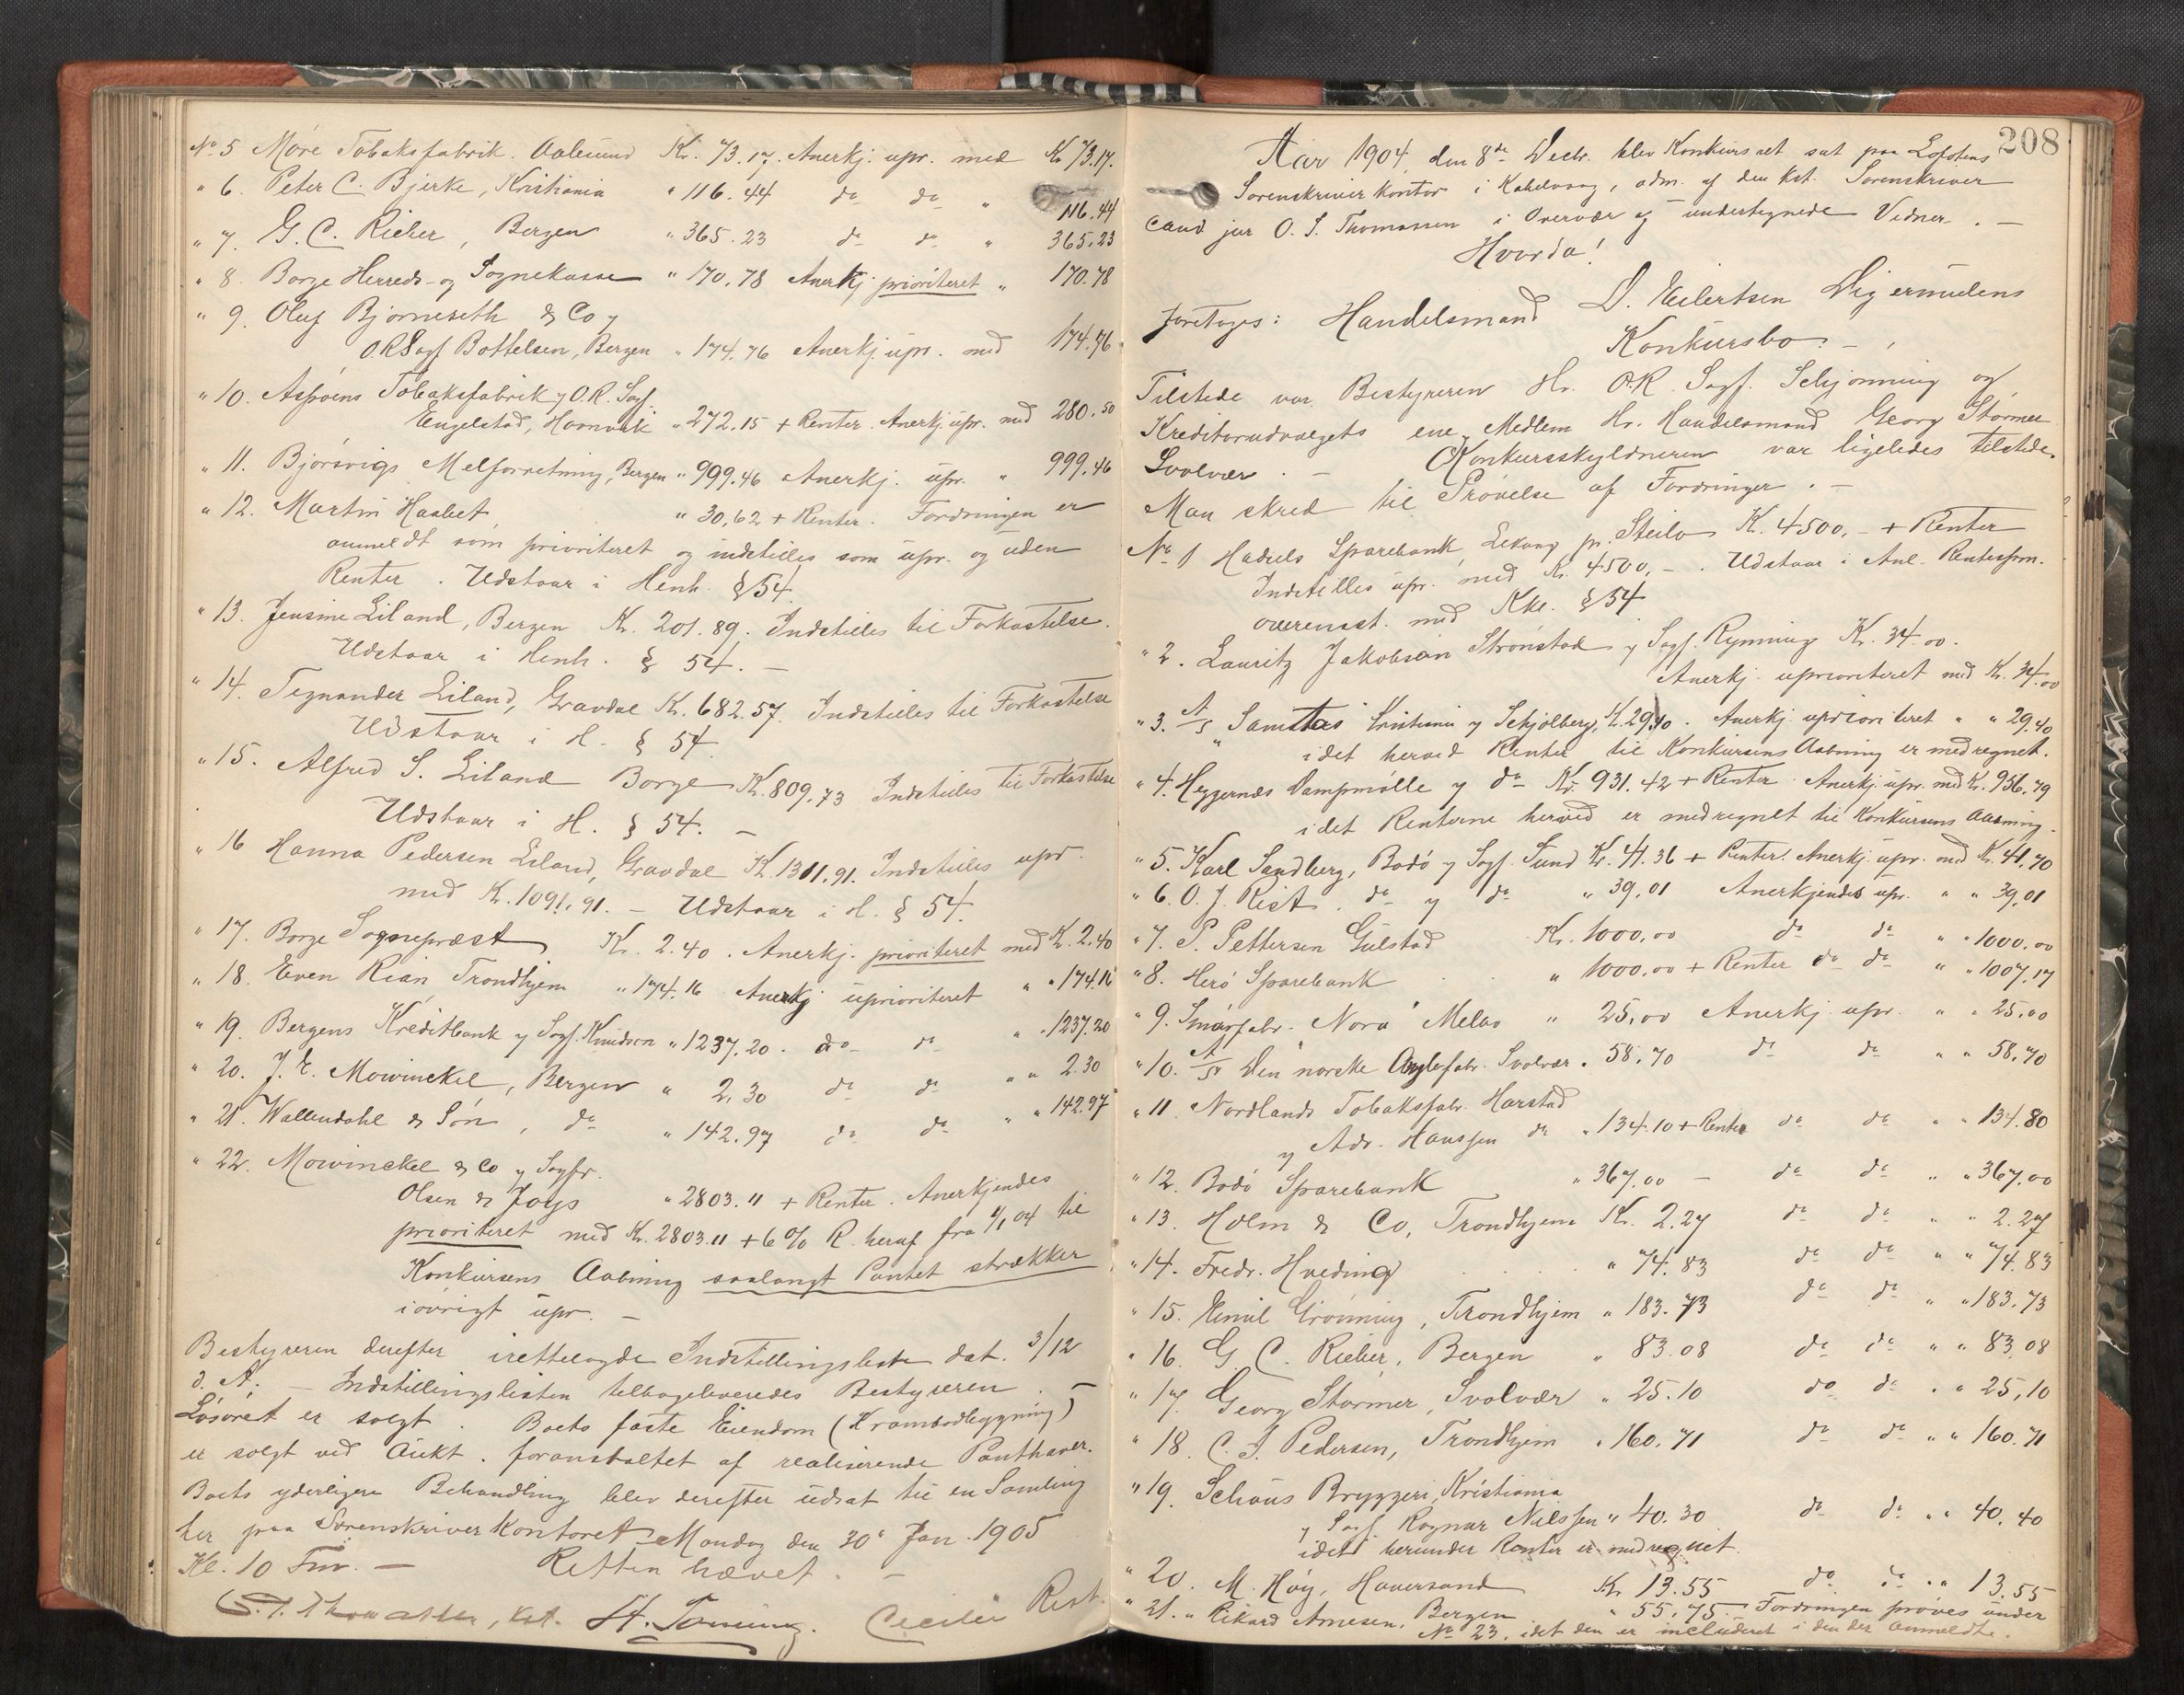 No 5 Møre Tobaksfabrik. Aalesund Kr. 73.17. Anerkj. upr. med Kr 73.17.
" 6. Peter C. Bjerke, Kristiania " 116.44 do do " 116.44
" 7. G. C. Rieber, Bergen " 365.23 do do " 365.23
" 8. Borge Herreds- og Sognekasse " 170.78 Anerkj prioriteret " 170.78
" 9. Oluf Bjørneseth & Co v
O.R.Sagf Bottelsen, Bergen " 174.76 Anerkj. upr. med 174.76
" 10. Aspøens Tobaksfabrik v O.R. Sagf.
Engelstad, " 272.15 + Renter. Anerkj. upr. med 280.50
" 11. Bjørsvigs Melforretning, Bergen " 999.46 Anerkj. upr. " 999.46
" 12. Martin Haabet " 30,62 + Renter. Fordringen er
anmeldt som prioriteret og indstilles som upr. og uden
Renter. Udstaar i Henh. § 54.
" 13. Jensine Liland, Bergen Kr. 201.89. Indstilles til Forkastelse.
Udstaar i Henh. § 54. —
" 14. Tegnander Liland, Gravdal Kr. 682.57. Indstilles til Forkastelse
Udstaar i H. § 54
" 15. Alfred S. Liland Borge Kr. 809.73 Indstilles til Forkastelse
Udstaar i H. § 54. —
" 16 Hanna Pedersen Liland, Gravdal Kr. 1311.91. Indstilles upr.
med Kr. 1091.91. — Udstaar i H. § 54.
" 17. Borge Sognepræst Kr. 2.40. Anerkj. prioriteret med Kr. 2.40
" 18. Even Rian Trondhjem " 174.16 Anerkj uprioriteret " " 174.16
" 19. Bergens Kreditbank v Sagf. Knudsen " 1237.20. do do " " 1237.20
" 20. J. E. Mowinckel, Bergen " 2,30 do do " " 2.30
" 21. Wallendahl & Søn, do " 142.97 do do " " 142.97
" 22. Mowinckel & Co v Sagfr.
Olsen & Joys " 2803.11 + Renter. Anerkjendes
prioriteret med Kr. 2803.11 + 6% R. heraf fra 1/1 04 til
Konkursens Aabning saalangt Pantet strækker
iøvrigt upr. —
Bestyreren derefter irettelagde Indstillingsliste dat. 3/12
d. A. — Indstillingslisten tilbageleveredes Bestyreren. —
Løsøret er solgt. Boets faste Eiendom (Krambodbygning)
er solgt ved Aukt. foranstaltet af realiserende Panthaver.
Boets yderligere Behandling blev derefter udsat til en Samling
her paa Sorenskriverkontoret Mandag den 30te Jan. 1905
Kl. 10 Fm. — Retten hævet. —
O. S. Thomassen, kst. H. Tønning. Cecilie Rist.
208
Aar 1904, den 8de Decbr. blev Konkursret sat paa Lofotens
Sorenskriverkontor i Kabelvaag, adm. af den kst. Sorenskriver
cand jur O. S. Thomassen i Overvær af undertegnede Vidner. —
Hvorda!
foretoges: Handelsmand D. Eilertsen Digermulens
Konkursbo. —
Tilstede var Bestyreren Hr. O.R. Sagf. Schjønning og
Kreditorudvalgets ene Medlem Hr. Handelsmand Georg Størmer
Svolvær. — Konkursskyldneren var ligeledes tilstede.
Man skred til Prøvelse af Fordringer. —
No 1 Hadsels Sparebank, Lekang pr. Steilo Kr. 4500,- + Renter
Indstilles upr. med Kr. 4500,-. Udstaar i Anl. Rentespm.
overensst. med Kkl. § 54
" 2. Lauritz Jakobsen Strønstad v Sagf. Rynning Kr. 34.00.
Anerkj. uprioriteret med Kr. 34.00
" 3. A/S "Samtlas" Kristiania v Schjølberg, Kr. 29.40. Anerkj. uprioriteret " " 29.40
idet herved Renter til Konkursens Aabning er medregnet.
" 4. Heggernæs Dampmølle v do Kr. 931.42 + Renter. Anerkj. upr. med Kr. 956.79
idet Renterne herved er medregnet til Konkursens Aabning.
" 5. Karl Sandberg, Bodø v Sagf. Sund Kr. 41.36 + Renter. Anerkj. upr. med Kr. 41.70
" 6. O. J. Rist. do v do " 39,01 Anerkjendes upr. " " 39,01
" 7. P. Pettersen Gulstad Kr. 1000,00 do do " " 1000.00
" 8. Herø Sparebank " 1000.00 + Renter do do " " 1007,17
" 9. Smørfabr. "Nora" Melbo " 25,00 Anerkj. upr. " " 25.00
" 10. A/S Den norske Anglefabr. Svolvær " 58.70 do do " " 58.70
" 11. Nordlands Tobaksfabr. Harstad
v Adv. Hanssen do " 134.10 + Renter do do " " 134.80
" 12. Bodø Sparebank " 367.00 — do do " " 367.00
" 13. Holm & Co, Trondhjem Kr. 2.27 do do " " 2.27
" 14. Fredr. Hveding " 74.83 do do " " 74.83
" 15. Emil Grønning, Trondhjem " 183.73 do do " " 183.73
" 16. G. C. Rieber, Bergen " 83.08 do do " " 83,08
" 17. Georg Størmer, Svolvær " 25.10 do do " " 25,10
" 18. C. A. Pedersen, Trondhjem " 160.71 do do " " 160.71
" 19. Schous Bryggeri, Kristiania
v Sagf. Ragnar Nilssen " 40.30 do do " " 40.40
idet herunder Renter er medregnet.
" 20. M. Høy, Haversand Kr 13.55 do do " " 13.55
" 21. " Rikard Arnesen, Bergen " 55.75 — Fordringen prøves under
No 23. idet den er inclüderet i den der anmeldte.